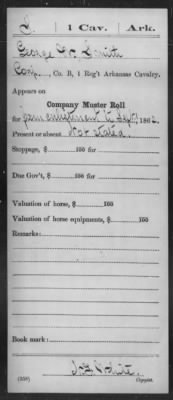 S | 1 Cav. | Ark.
George W. Smith
Corp, Co. B, 1 Reg't Arkansas Cavalry.
Appears on
Company Muster Roll
for from enlistment to Sept, 1862.
Present or absent Not stated.
Stoppage, $ 100 for
Due Gov't, $ 100 for
Valuation of horse, $ 100
Valuation of horse equipments, $ 100
Remarks:
Book mark:
White.
(358) Copyist.